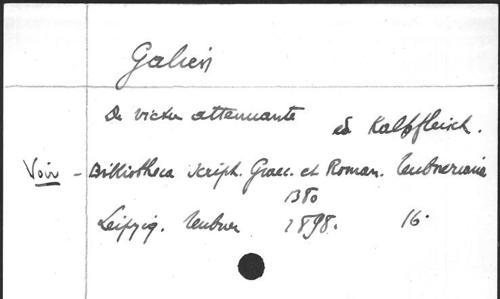 Galien
De victu attenuante ed Kalbfleisch.
Voir - Bibliotheca script. Graec. et Roman. Teubneriana
1380
Leipzig. Teubner 1898. 16.